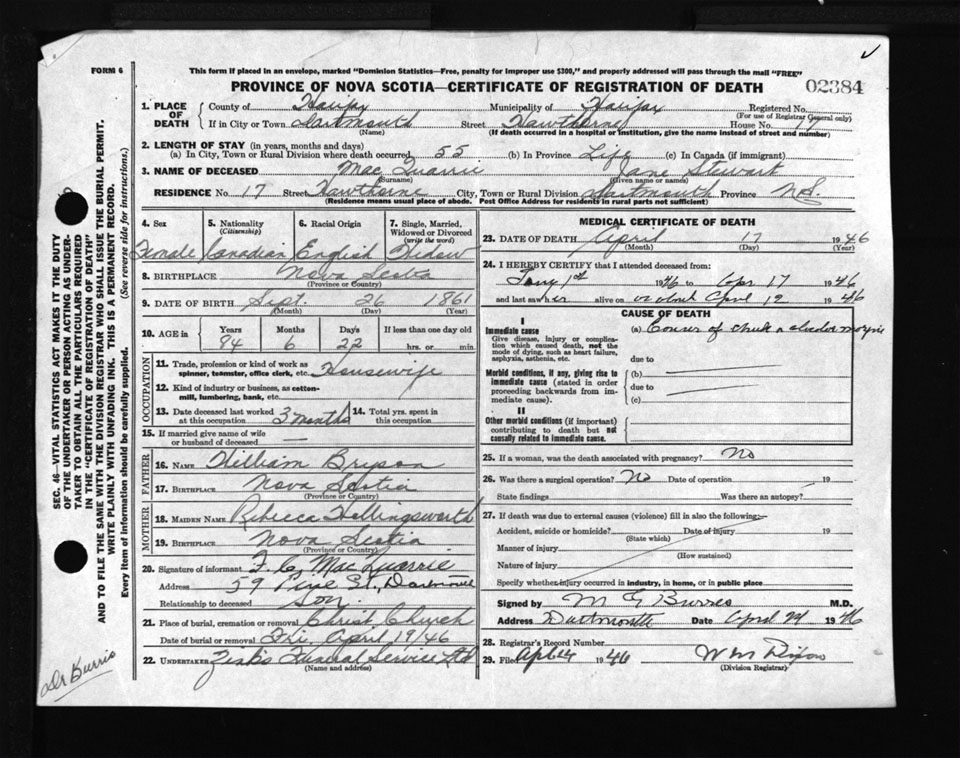 FORM 6
This form if placed in an envelope, marked "Dominion Statistics—Free, penalty for improper use $300," and properly addressed will pass through the mail "FREE"
PROVINCE OF NOVA SCOTIA—CERTIFICATE OF REGISTRATION OF DEATH
02384
1. PLACE OF DEATH
County of Halifax Municipality of Halifax Registered No.
(For use of Registrar General only)
If in City or Town Dartmouth Street Hawthorne House No. 17
(Name) (If death occurred in a hospital or institution, give the name instead of street and number)
2. LENGTH OF STAY (in years, months and days)
(a) In City, Town or Rural Division where death occurred 55 (b) In Province Life (c) In Canada (if immigrant)
3. NAME OF DECEASED Mac Quarrie Jane Stewart
(Surname) (Given name or names)
RESIDENCE No. 17 Street Hawthorne City, Town or Rural Division Dartmouth Province N.S.
(Residence means usual place of abode. Post Office Address for residents in rural parts not sufficient)
4. Sex 5. Nationality (Citizenship) 6. Racial Origin 7. Single, Married, Widowed or Divorced (write the word)
Female Canadian English Widow
8. BIRTHPLACE Nova Scotia
(Province or Country)
9. DATE OF BIRTH Sept. 26 1861
(Month) (Day) (Year)
10. AGE in Years Months Days If less than one day old
84 6 22 hrs. or min.
OCCUPATION
11. Trade, profession or kind of work as spinner, teamster, office clerk, etc. Housewife
12. Kind of industry or business, as cotton-mill, lumbering, bank, etc.
13. Date deceased last worked at this occupation 3 months 14. Total yrs. spent in this occupation
15. If married give name of wife or husband of deceased —
FATHER
16. NAME William Bryson
17. BIRTHPLACE Nova Scotia
(Province or Country)
MOTHER
18. MAIDEN NAME Rebecca Hollingsworth
19. BIRTHPLACE Nova Scotia
(Province or Country)
20. Signature of informant F. C. Mac Quarrie
Address 59 Pine St., Dartmouth
Relationship to deceased Son.
21. Place of burial, cremation or removal Christ Church
Date of burial or removal Fri. April 19/46
22. UNDERTAKER Zink's Funeral Service Ltd
(Name and address)
MEDICAL CERTIFICATE OF DEATH
23. DATE OF DEATH April 17 1946
(Month) (Day) (Year)
24. I HEREBY CERTIFY that I attended deceased from:
Jany 1st 1946 to Apr 17 1946
and last saw her alive on or about April 12 1946
CAUSE OF DEATH
I
Immediate cause (a) Cancer of
Give disease, injury or complication which caused death, not the mode of dying, such as heart failure, asphyxia, asthenia, etc.
due to
Morbid conditions, if any, giving rise to immediate cause (stated in order proceeding backwards from immediate cause).
(b)
due to
(c)
II
Other morbid conditions (if important) contributing to death but not causally related to immediate cause.
25. If a woman, was the death associated with pregnancy? No
26. Was there a surgical operation? No Date of operation 19
State findings Was there an autopsy?
27. If death was due to external causes (violence) fill in also the following:—
Accident, suicide or homicide? Date of injury 19
(State which)
Manner of injury
(How sustained)
Nature of injury
Specify whether injury occurred in industry, in home, or in public place
Signed by M G Burris M.D.
Address Dartmouth Date April 24 1946
28. Registrar's Record Number
29. Filed 1946 W M Dixon
(Division Registrar)
SEC. 46—VITAL STATISTICS ACT MAKES IT THE DUTY
OF THE UNDERTAKER OR PERSON ACTING AS UNDER-
TAKER TO OBTAIN ALL THE PARTICULARS REQUIRED
IN THE "CERTIFICATE OF REGISTRATION OF DEATH"
AND TO FILE THE SAME WITH THE DIVISION REGISTRAR WHO SHALL ISSUE THE BURIAL PERMIT.
WRITE PLAINLY WITH UNFADING INK. THIS IS A PERMANENT RECORD.
Every item of information should be carefully supplied. (See reverse side for instructions.)
Dr Burris